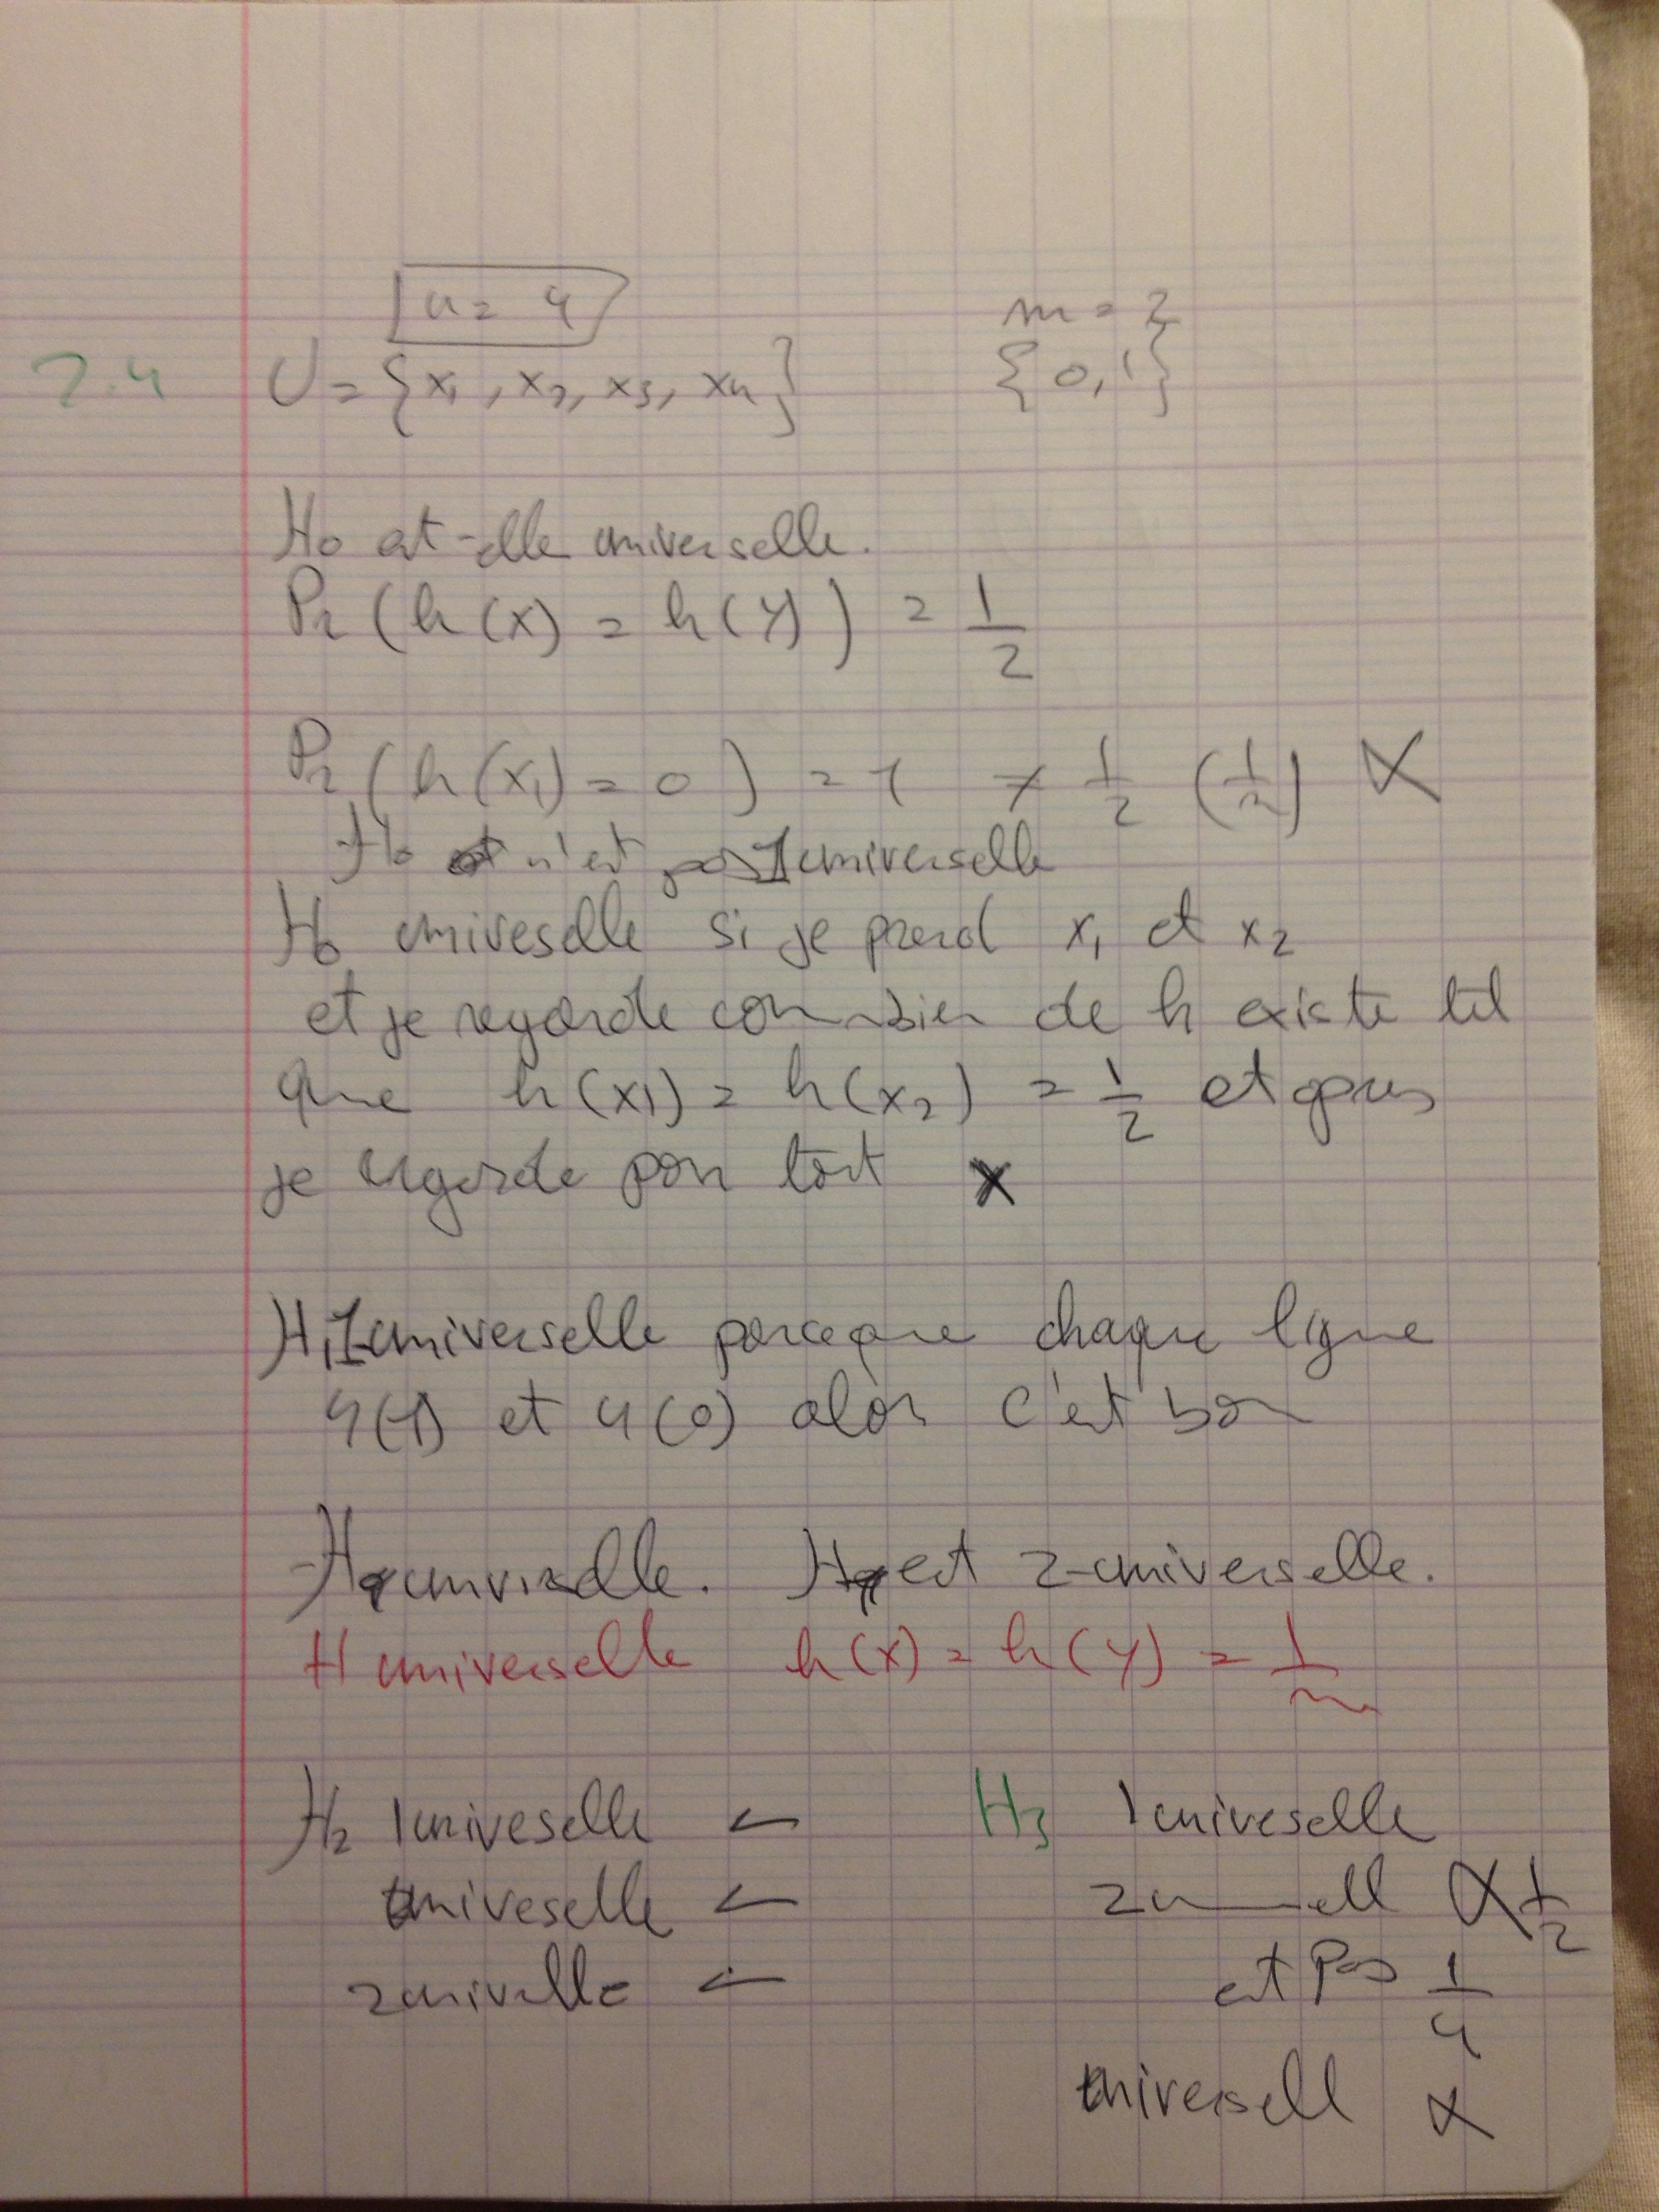 u = 4
m = 2
2.4 U = {x1, x2, x3, x4} {0,1}
H0 est-elle universelle.
Pr (h(x) = h(y)) = 1/2
Pr (h(x1) = 0) = 1 ≠ 1/2 (1/m) X
H0 n'est pas 1 universelle
H0 univeselle si je prend x1 et x2
et je regarde combien de h existe tel
que h(x1) = h(x2) = 1/2 et apres
je regarde pour tout x
H1 1universelle parceque chaque ligne
4(1) et 4(0) alors c'est bon
H1 universelle. H1 est 2-universelle.
H universelle h(x) = h(y) = 1/m
H2 1univeselle ← H3 1univeselle
univeselle ← X 1/2
← et pas 1/4
universell X